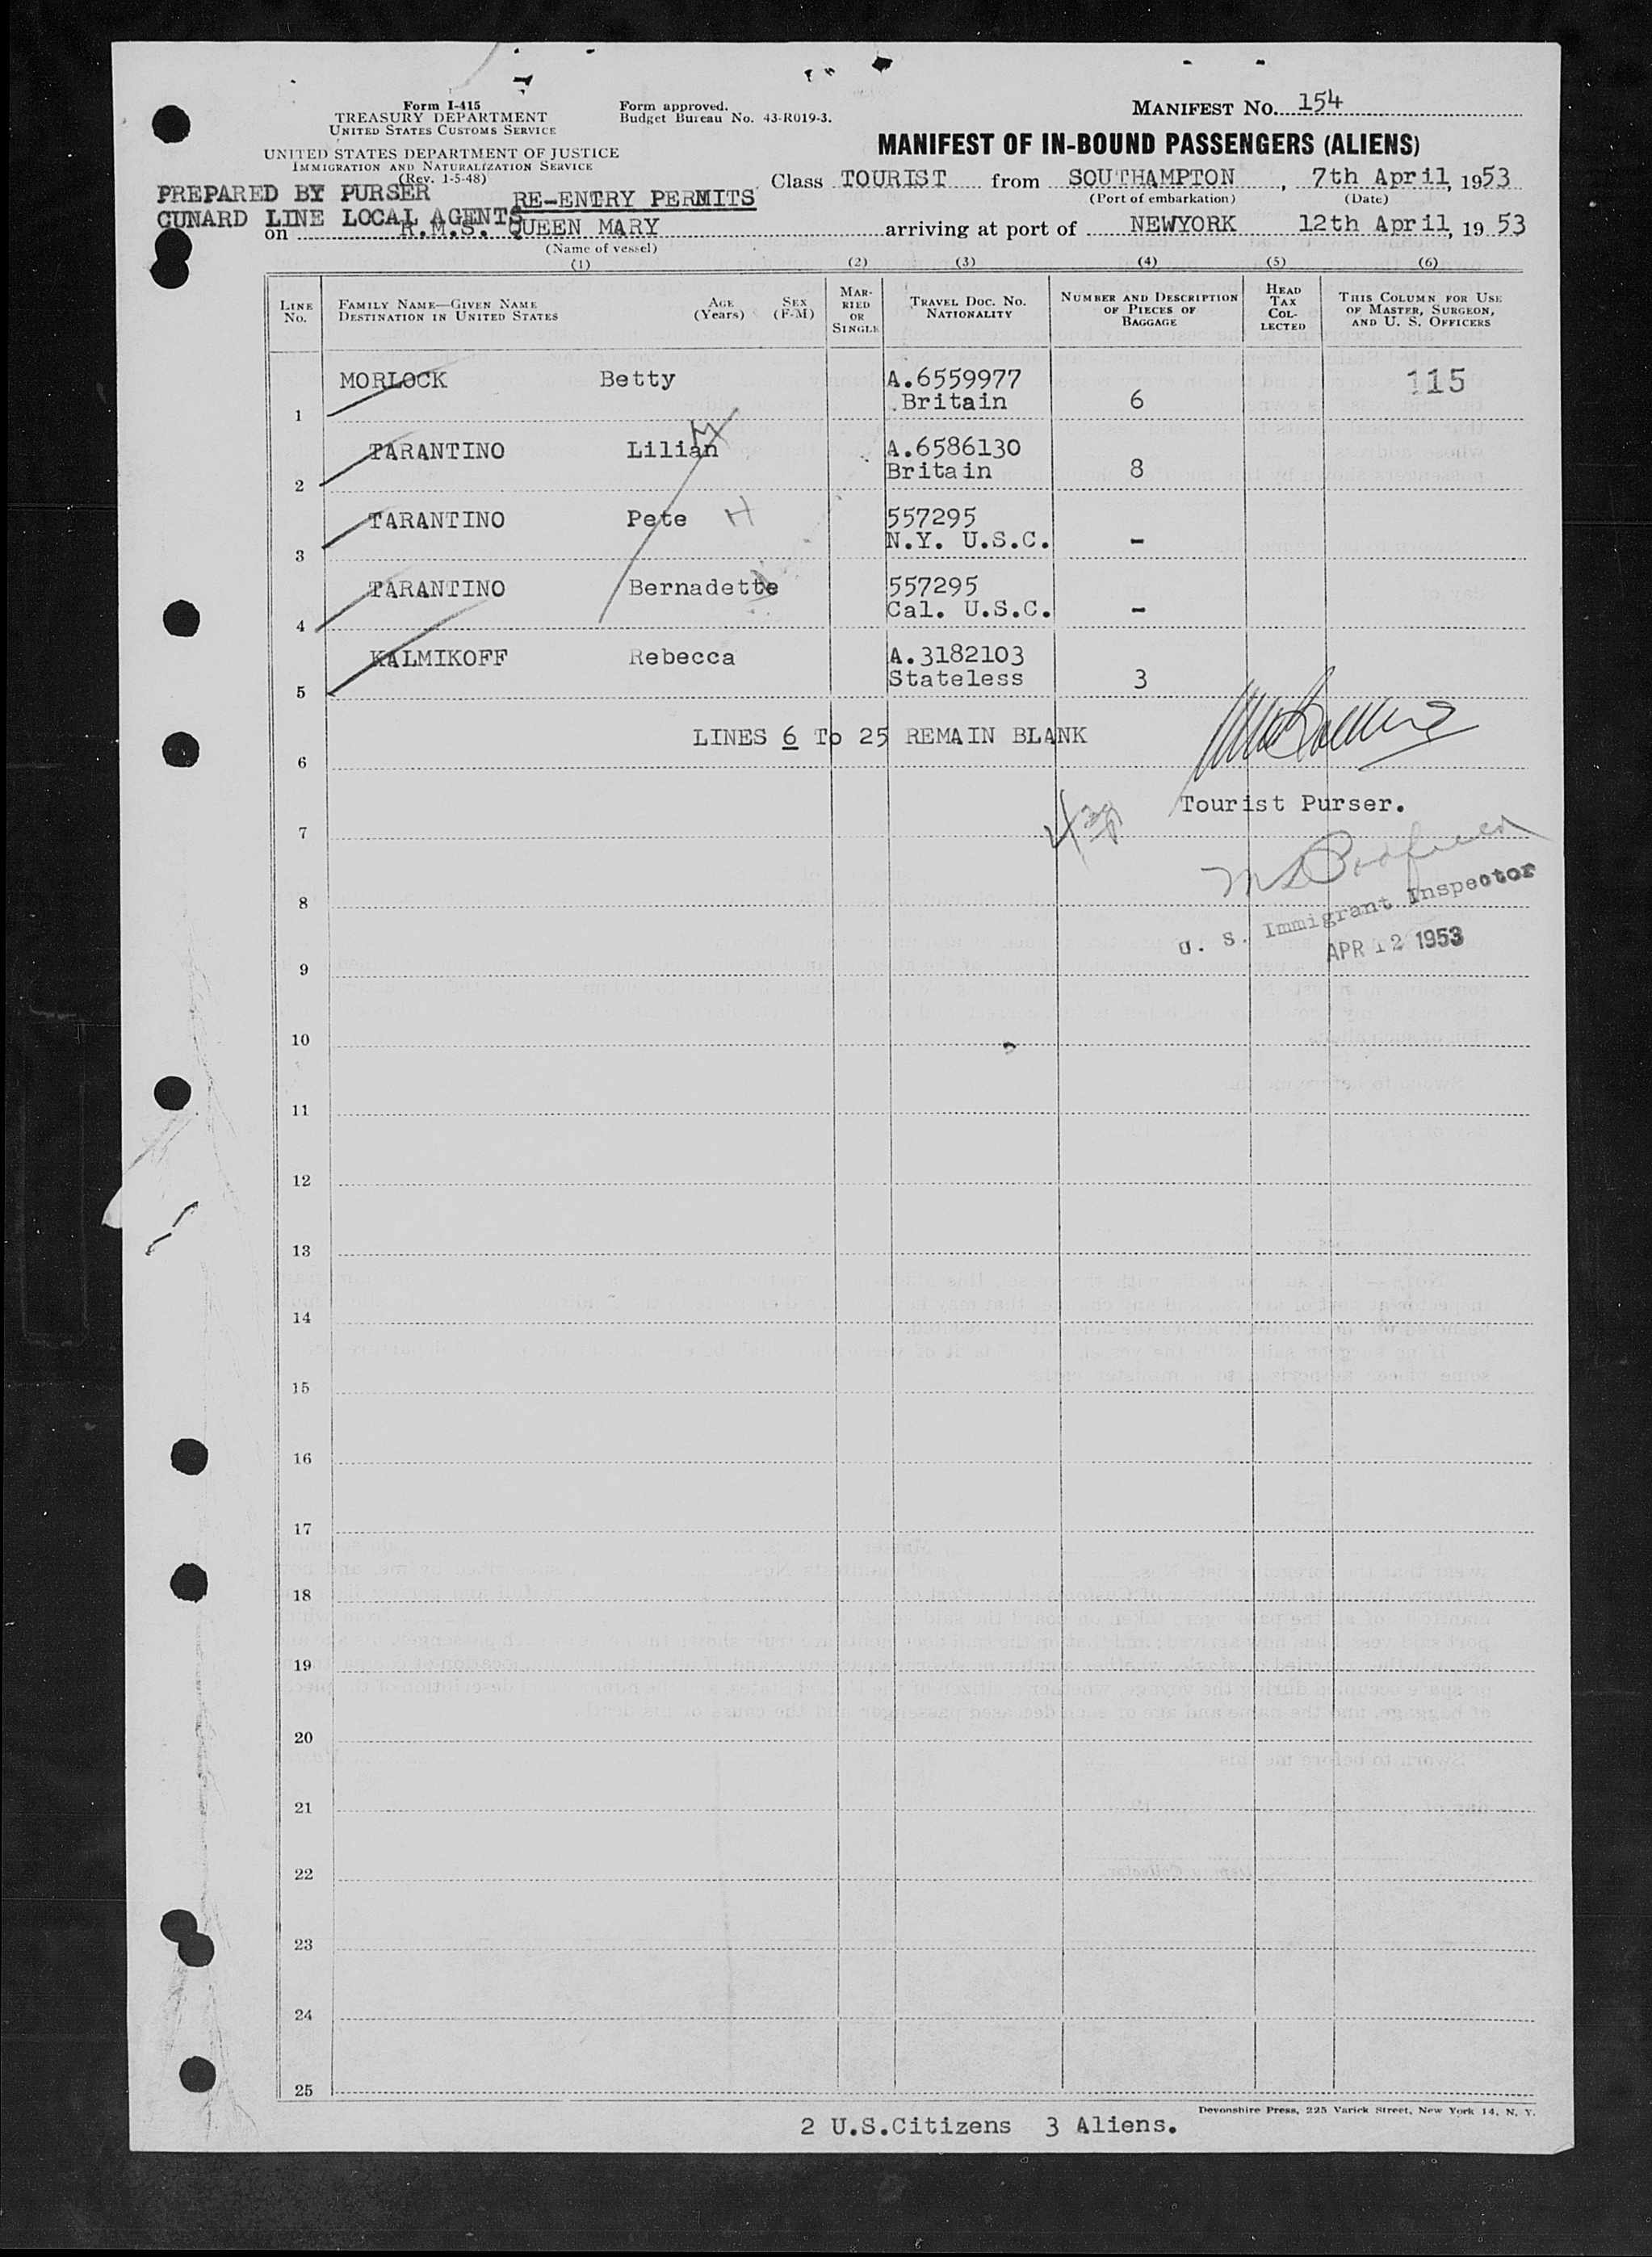 Form I-415
TREASURY DEPARTMENT
UNITED STATES CUSTOMS SERVICE
UNITED STATES DEPARTMENT OF JUSTICE
IMMIGRATION AND NATURALIZATION SERVICE
(Rev. 1-5-48)
Form approved.
Budget Bureau No. 43-R019-3.
MANIFEST NO. 154
MANIFEST OF IN-BOUND PASSENGERS (ALIENS)
PREPARED BY PURSER
CUNARD LINE LOCAL AGENTS
RE-ENTRY PERMITS
Class TOURIST from SOUTHAMPTON, 7th April, 1953
(Port of embarkation) (Date)
on R.M.S. QUEEN MARY arriving at port of NEWYORK 12th April, 19 53
(Name of vessel)
(1) (2) (3) (4) (5) (6)
LINE No. FAMILY NAME—GIVEN NAME DESTINATION IN UNITED STATES AGE (Years) SEX (F-M) MARRIED OR SINGLE TRAVEL DOC. NO. NATIONALITY NUMBER AND DESCRIPTION OF PIECES OF BAGGAGE HEAD TAX COLLECTED THIS COLUMN FOR USE OF MASTER, SURGEON, AND U. S. OFFICERS
MORLOCK Betty A.6559977 115
1 .Britain 6
TARANTINO Lilian A.6586130
2 Britain 8
TARANTINO Pete H 557295
3 N.Y. U.S.C. -
TARANTINO Bernadette 557295
4 Cal. U.S.C. -
KALMIKOFF Rebecca A.3182103
5 Stateless 3
LINES 6 To 25 REMAIN BLANK
6
Tourist Purser.
7
8
U. S. Immigrant Inspector
APR 12 1953
9
10
11
12
13
14
15
16
17
18
19
20
21
22
23
24
25
Devonshire Press, 225 Varick Street, New York 14, N. Y.
2 U.S.Citizens 3 Aliens.